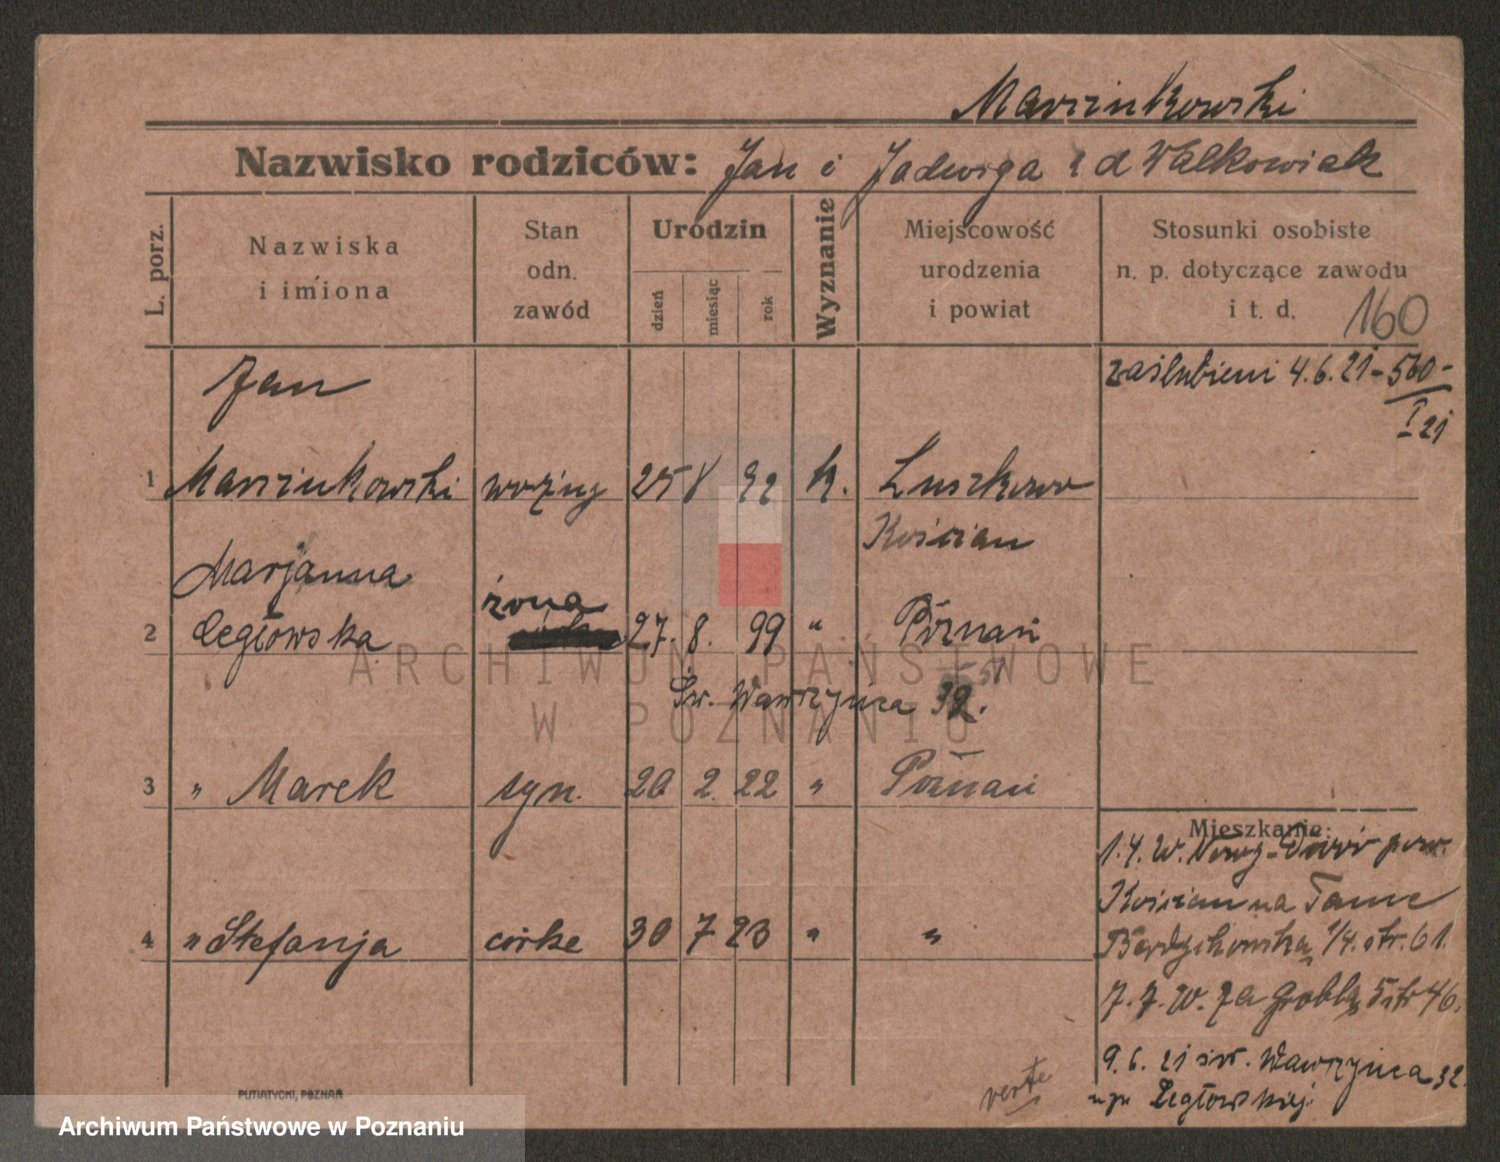 Marcinkowski
Nazwisko rodziców: Jan i Jadwiga z d Walkowiak
L. porz.
Nazwiska
i imiona
Stan
odn.
zawód
Urodzin
dzień
miesiąc
rok
Wyznanie
Miejscowość
urodzenia
i powiat
Stosunki osobiste
n. p. dotyczące zawodu
i t. d.
160
Jan
zaślubieni 4.6.21 - 560 -
I 21
1 Marcinkowski woźny 25 8 92 k. Luszkowo
Kościan
Marjanna
żona
2 Ległowska 27. 8. 99 " Poznań
Św. Wawrzyńca 32.
3 " Marek syn. 20 2. 22 " Poznań
Mieszkanie:
1.4. w. Nowy-Dwór pow.
Kościan na Tamę
4 " Stefanja córka 30 7 23 " "
Berdychowska 1/4. str. 61.
7.7. w. Za Groblą 5 str 46.
9.6.21 św. Wawrzyńca 32.
npn Ległowskiej.
verte
PUTIATYCKI, POZNAŃ
ARCHIWUM PAŃSTWOWE
W POZNANIU
Archiwum Państwowe w Poznaniu